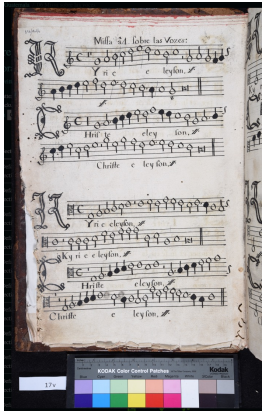 Missa à 4. sobre las Vozes:
K Yrie e eleyson,
C Hriste eleyson,
Christe eleyson,
K Yrie eleyson,
Kyrie eleyson,
C Hriste eleyson,
Christe eleyson,
17v
KODAK Color Control Patches
Kodak